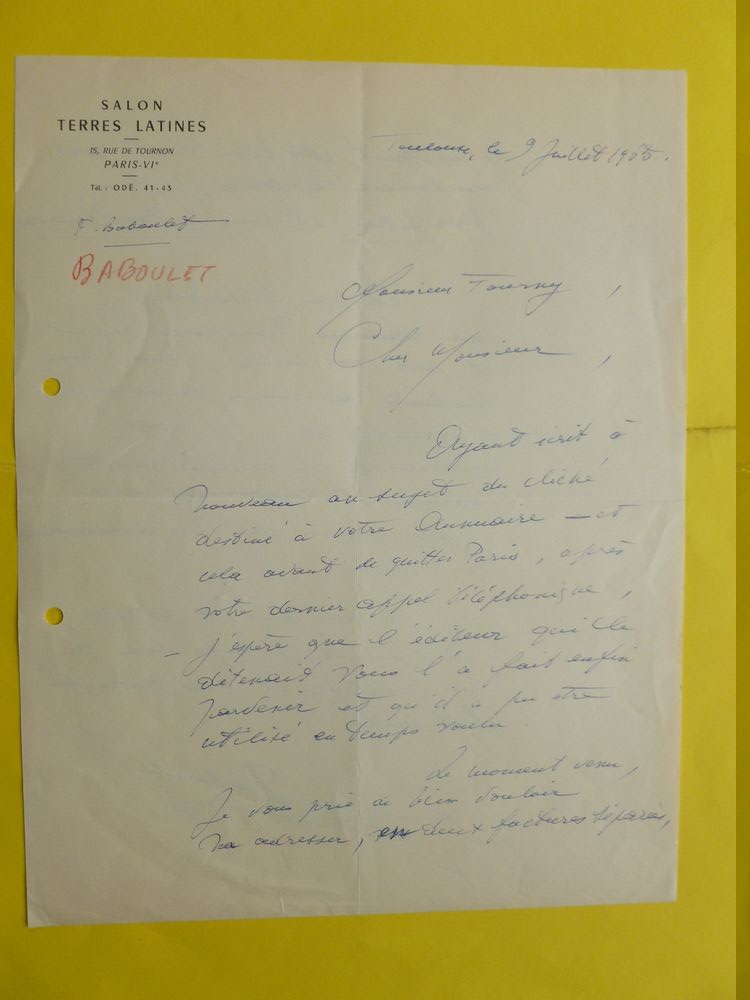 SALON
TERRES LATINES
15, RUE DE TOURNON
PARIS-VIᵉ
Tél.: ODÉ. 41-43
Toulouse, le 9 Juillet 1965.
F. Baboulet
BABOULET
Monsieur Tourny,
Cher Monsieur,
Ayant écrit à
nouveau au sujet du cliché
destiné à votre Annuaire — et
cela avant de quitter Paris, après
votre dernier appel téléphonique,
— j'espère que l'éditeur qui le
détenait vous l'a fait enfin
parvenir et qu'il a pu être
utilisé en temps voulu.
Le moment venu,
je vous prie de bien vouloir
m'adresser, deux factures séparées,